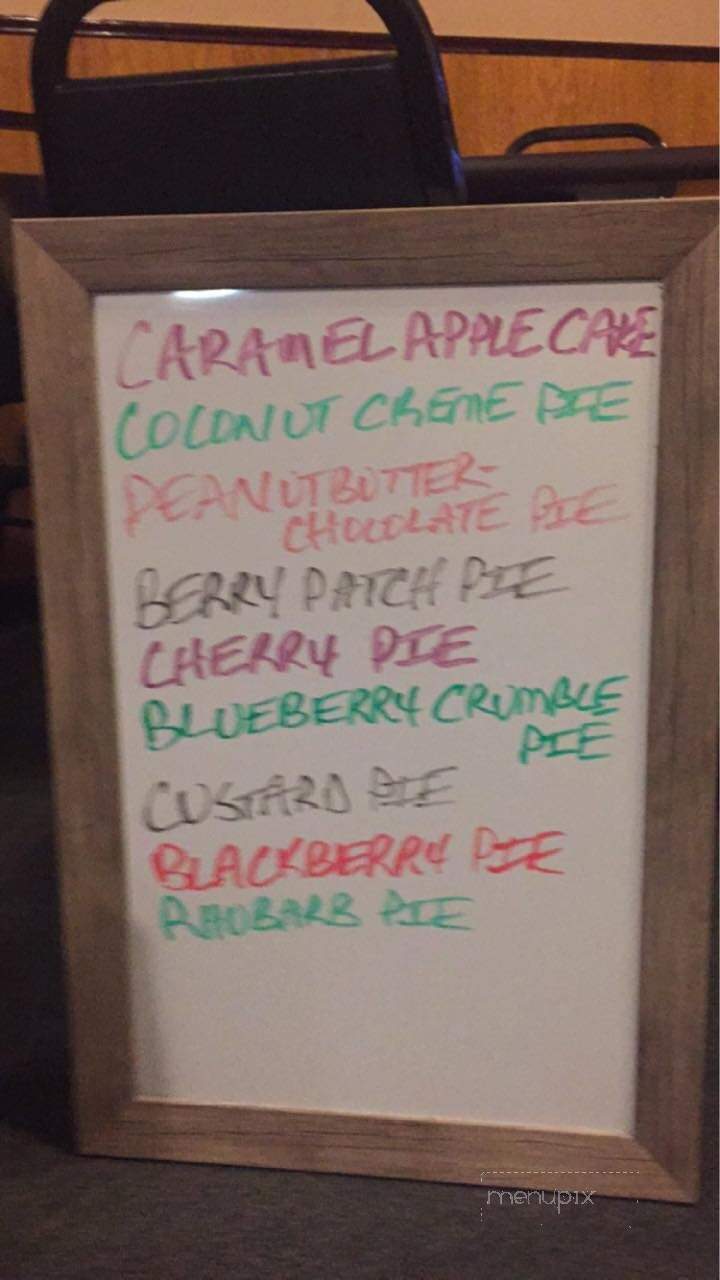 CARAMEL APPLE CAKE
COCONUT CREME PIE
PEANUTBUTTER-
CHOCOLATE PIE
BERRY PATCH PIE
CHERRY PIE
BLUEBERRY CRUMBLE
PIE
CUSTARD PIE
BLACKBERRY PIE
RHUBARB PIE
menupix